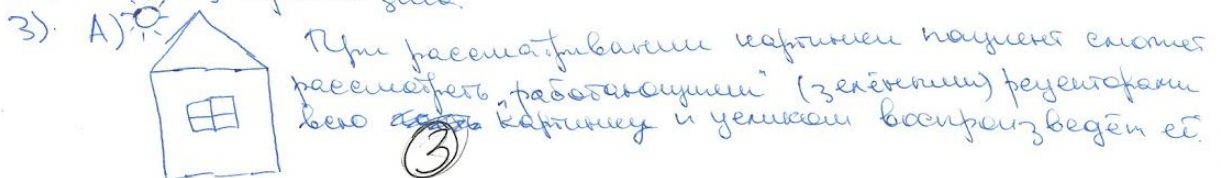 3). А)
При рассматривании картинки пациент сможет
рассмотреть „работающими" (зелёными) рецепторами
всю картинку и целиком воспроизведёт её.
3